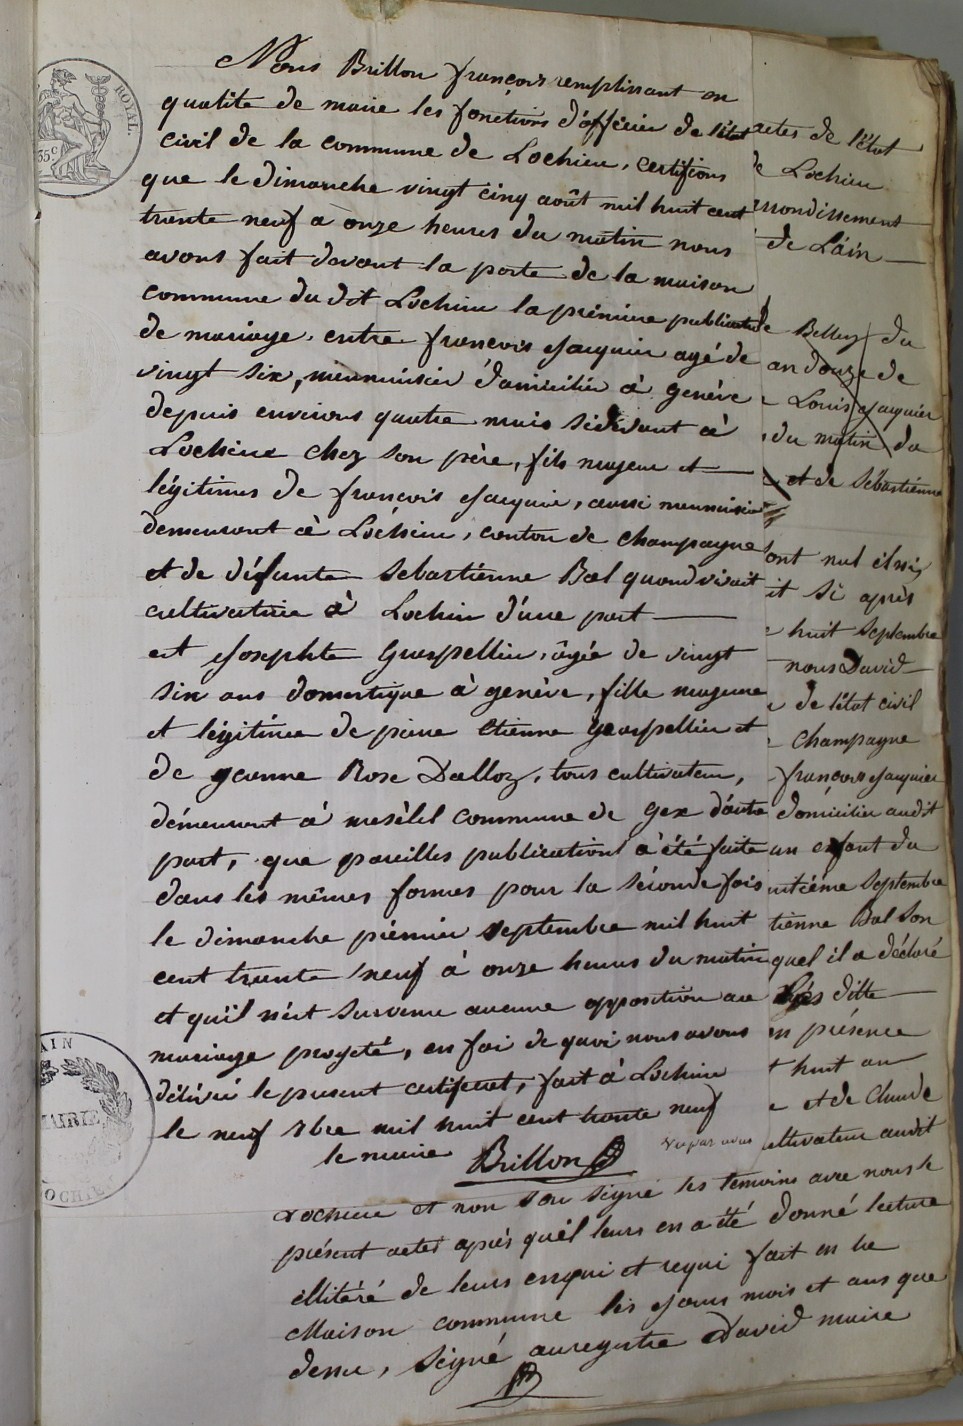 Nous Brillon françois remplissant en
qualité de maire les fonctions d'officier de l'état
civil de la commune de Lochieu, certifions
que le dimanche vingt cinq août mil huit cent
trente neuf a onze heures du matin nous
avons fait devant la porte de la maison
commune du dit Lochieu la prémiere publication
de mariage, entre françois Jacquier agé de
vingt six, menuisier domicilié à genève
depuis environs quatre mois sidevant à
Lochieu chez son père, fils majeur et
légitimes de françois Jacquier, aussi menuisier
demeurant à Lochieu, canton de champagne
et de défunte Sebastiénne Bal quand vivait
cultivatrice à Lochieu d'une part
et Josephte Grospellier, âgée de vingt
six ans domestique à genève, fille majeure
et légitimée de pierre Etienne Grospellier et
de jeanne Rose Dalloz, tous cultivateur,
démeurant à commune de Gex d'autre
part, que pareilles publications à été faite
dans les mêmes formes pour la séconde fois
le dimanche prémier septembre mil huit
cent trente neuf à onze heures du matin
et qu'il n'est survenu aucune opposition au
mariage projeté, en foi de quoi nous avons
délivré le present certificat, fait à Lochieu
le neuf 7bre mil huit cent trente neuf
le maire Brillon
Vu par nous
actes de l'état
de Lochieu
arrondissement
de L'ain
Belley du
an douze de
Louis Jacquier
du matin du
et de Sébastiénne
ont nul
it si après
huit Septembre
nous David
de l'état civil
champagne
françois Jacquier
domicilier audit
un enfant du
uitiéme Septembre
tienne Bal Son
quel il a déclaré
ditte
en présence
t huit an
et de Claude
ultivateur audit
Lochieu et non Sou Signé les temoins avec nous le
présent actes après qu'él leurs en a été donné lecture
illitéré de leurs enqui et requi fait en la
Maison commune les Jours mois et ans que
dessu, Signé auregistre David maire
ROYAL.
35c
AIN
MAIRIE
LOCHIEU